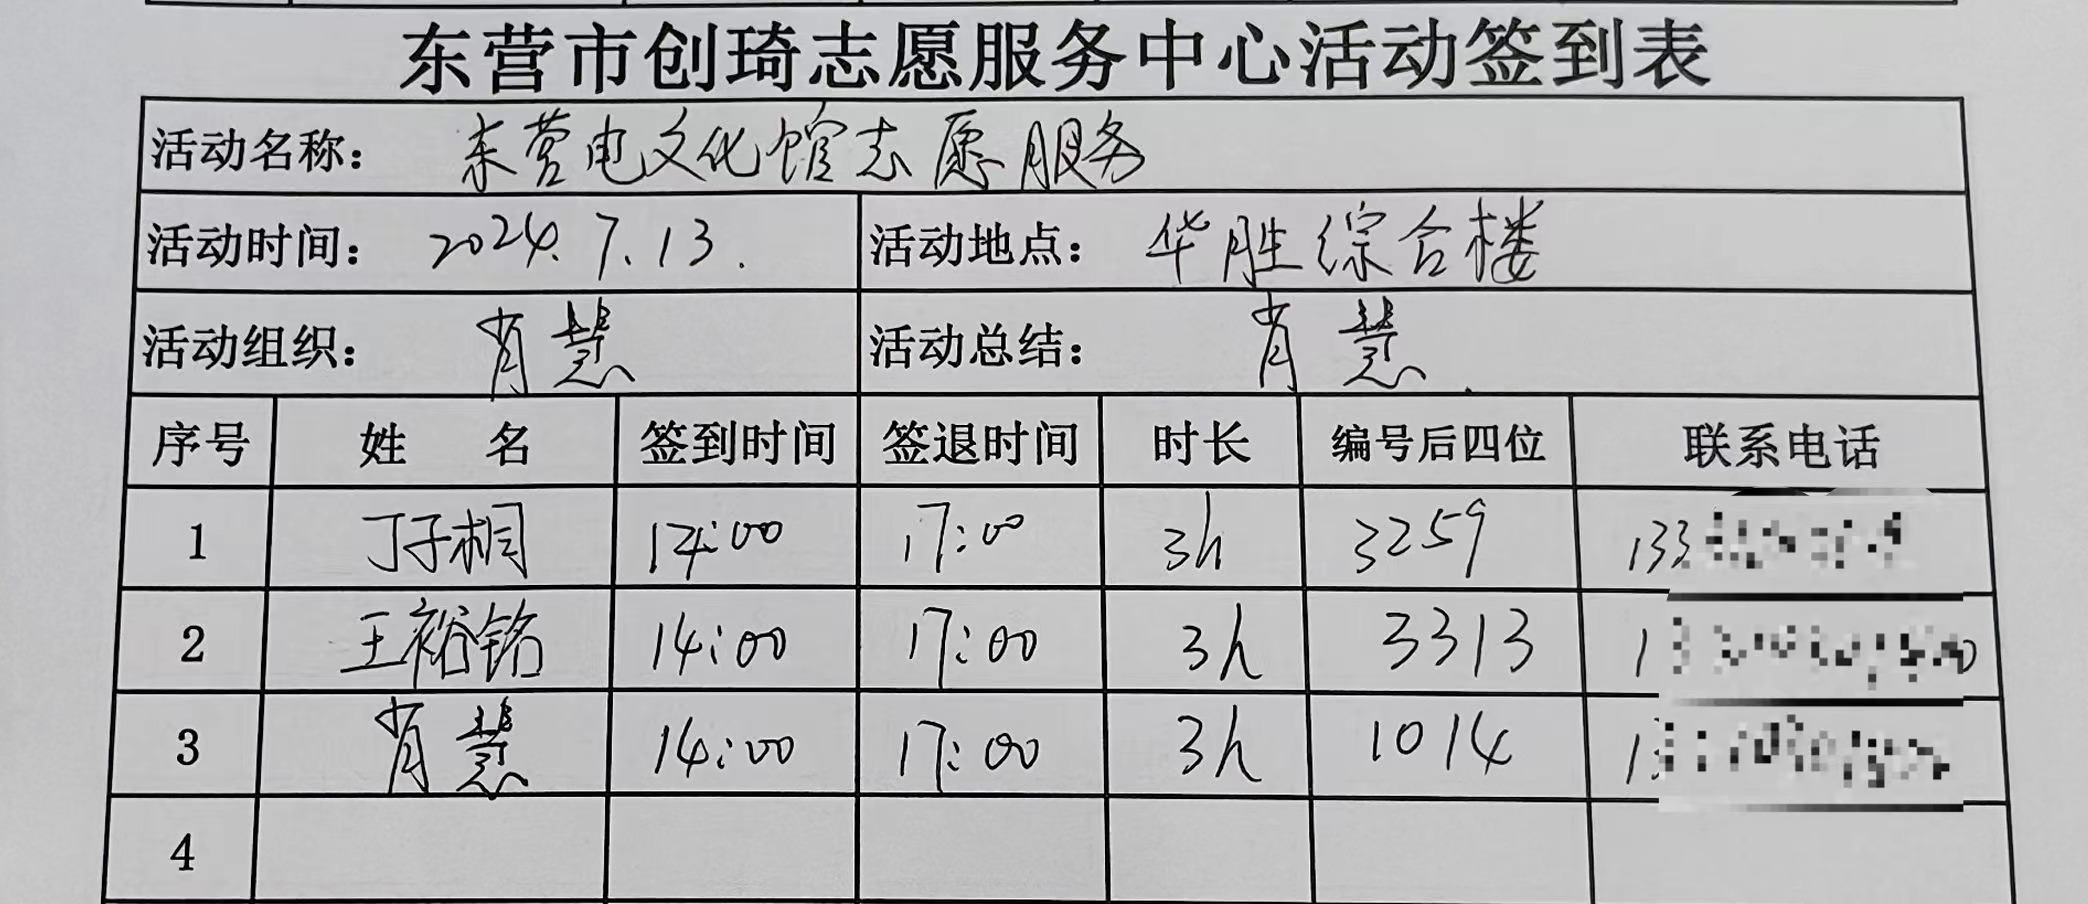 东营市创琦志愿服务中心活动签到表
活动名称： 东营电文化馆志愿服务
活动时间： 2024.7.13. 活动地点： 华胜综合楼
活动组织： 肖慧 活动总结： 肖慧
序号 姓 名 签到时间 签退时间 时长 编号后四位 联系电话
1 丁子桐 14:00 17:00 3h 3259 133
2 王裕铭 14:00 17:00 3h 3313 1
3 肖慧 14:00 17:00 3h 1014 1
4